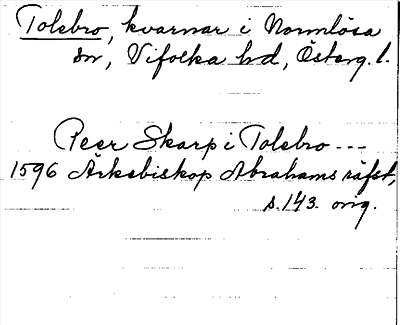 Tolebro, kvarnar i Normlösa
sn, Vifolka hd, Österg. l.
Peer Skarp i Tolebro ---
1596 Ärkebiskop Abrahams räfst,
s. 143. orig.